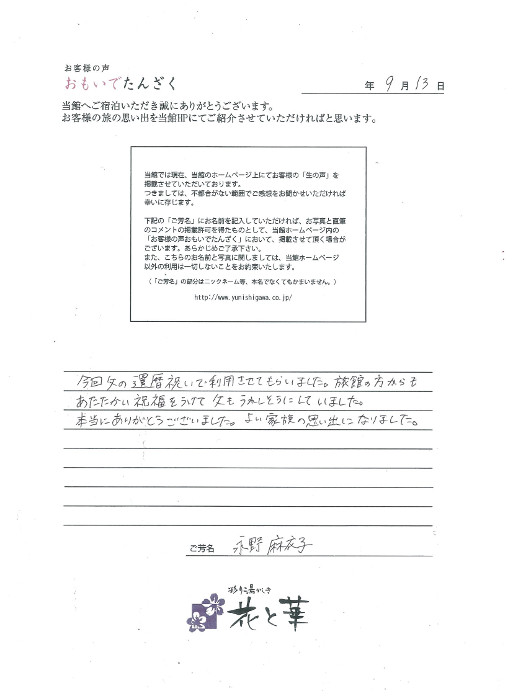 お客様の声
おもいでたんざく
年 9月 13日
当館へご宿泊いただき誠にありがとうございます。
お客様の旅の思い出を当館HPにてご紹介させていただければと思います。
当館では現在、当館のホームページ上にてお客様の「生の声」を
掲載させていただいております。
つきましては、不都合がない範囲でご感想をお聞かせいただければ
幸いに存じます。
下記の「ご芳名」にお名前を記入していただければ、お写真と直筆
のコメントの掲載許可を得たものとして、当館ホームページ内の
「お客様の声おもいでたんざく」において、掲載させて頂く場合が
ございます。あらかじめご了承下さい。
また、こちらのお名前と写真に関しましては、当館ホームページ
以外の利用は一切しないことをお約束いたします。
（「ご芳名」の部分はニックネーム等、本名でなくてもかまいません。）
http://www.yunishigawa.co.jp/
今回父の還暦祝いで利用させてもらいました。旅館の方からも
あたたかい祝福をうけて父もうれしそうにしていました。
本当にありがとうございました。よい家族の思い出になりました。
ご芳名 永野 麻衣子
花と華